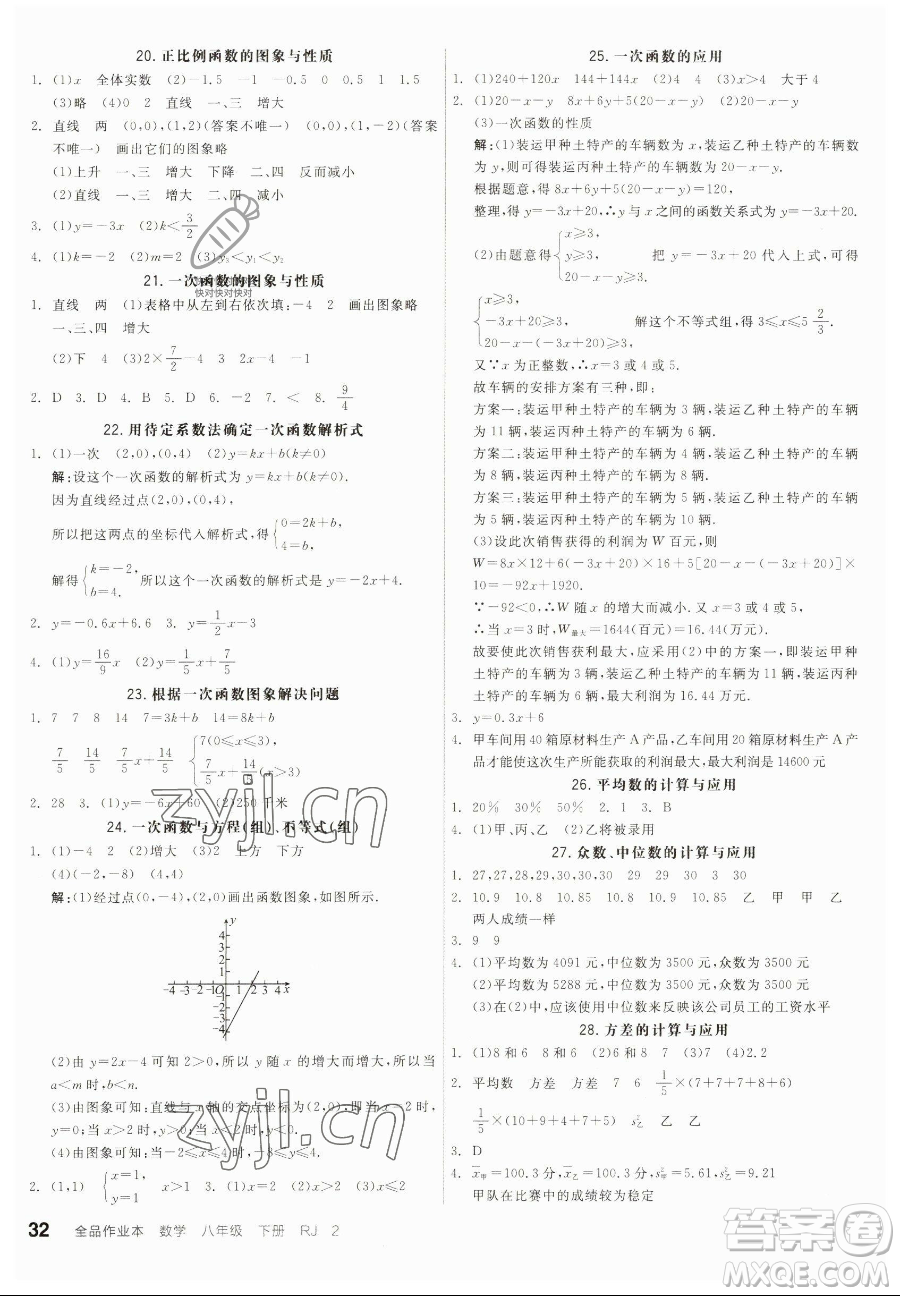 20. 正比例函数的图象与性质
1. (1)x 全体实数 (2)-1.5 -1 -0.5 0 0.5 1 1.5
(3)略 (4)0 2 直线 一、三 增大
2. 直线 两 (0,0),(1,2)(答案不唯一) (0,0),(1,-2)(答案
不唯一) 画出它们的图象略
(1)上升 一、三 增大 下降 二、四 减小
(2)直线 一、三 增大 二、四 减小
3. (1)y=-3x (2)k<3/2
4. (1)k<-2 (2)m=2 (3)y₃<y₁<y₂
21. 一次函数的图象与性质
1. 直线 两 (1)表格中从左到右依次填:-4 2 画出图象略
快对快对快对
一、三、四 增大
(2)下 4 (3)2×7/2 -4 3 2 4 5
2. D 3. D 4. A 5. D 6. > 7. < 8. 9/4
22. 用待定系数法确定一次函数解析式
1. (1)一次 (2,0),(0,4) (2)y=kx+b(k≠0)
解:设这个一次函数的解析式为y=kx+b(k≠0).
因为直线经过点(2,0),(0,4),
所以把这两点的坐标代入解析式,得{0=2k+b, 4=b.
解得{k=-2, b=4. 所以这个一次函数的解析式为y=-2x+4.
2. y=-0.6x+6.6 3. y=1/2x-3
4. (1)y=16/9x (2)y=4/5x+7/5
23. 根据一次函数图象解决问题
1. 7 7 8 14 7=3k+b 14=8k+b
7/5 14/5 7/5 14/5 {7(0≤x≤3), 7/5x+14/5(x>3)
2. 28 3. (1)y=-6x+60 (2)250千米
24. 一次函数与方程(组)、不等式(组)
1. (1)-4 2 (2)增大 (3)2 上方 下方
(4)(-2,-8) (4,4)
解:(1)经过点(0,-4),(2,0)画出函数图象,如图所示.
y
4
3
2
1
-4 -3 -2 -1 O 1 2 3 4 x
-1
-2
-3
-4
(2)由y=2x-4可知2>0,所以y随x的增大而增大,所以当
a<m时,b<n.
(3)由图象可知:直线与x轴的交点坐标为(2,0),即当x=2时,
y=0;当x>2时,y>0;当x<2时,y<0.
(4)由图象可知:当-2≤x≤4时,-8≤y≤4.
2. (1,1) {x=1, y=1 x>1 x<1
25. 一次函数的应用
1. (1)240+120x 144+144x (2)4 4 (3)x>4 大于4
2. (1)20-x-y 8x+6y+5(20-x-y) (2)20-x-y
(3)一次函数的性质
解:(1)装运甲种土特产的车辆数为x,装运乙种土特产的车辆数
为y,则可得装运丙种土特产的车辆数为20-x-y,
根据题意,得8x+6y+5(20-x-y)=120,
整理,得y=-3x+20,∴y与x之间的函数关系式为y=-3x+20.
(2)由题意得{x≥3, y≥3, 20-x-y≥3. 把y=-3x+20代入上式,可得
{x≥3, -3x+20≥3, 20-x-(-3x+20)≥3, 解这个不等式组,得3≤x≤5 2/3.
又∵x为正整数,∴x=3或4或5.
故车辆的安排方案有三种,即:
方案一:装运甲种土特产的车辆为3辆,装运乙种土特产的车辆
为11辆,装运丙种土特产的车辆为6辆.
方案二:装运甲种土特产的车辆为4辆,装运乙种土特产的车辆
为8辆,装运丙种土特产的车辆为8辆.
方案三:装运甲种土特产的车辆为5辆,装运乙种土特产的车辆
为5辆,装运丙种土特产的车辆为10辆.
(3)设此次销售获得的利润为W百元,则
W=8x×12+6(-3x+20)×16+5[20-x-(-3x+20)]×
10=-92x+1920.
∵-92<0,∴W随x的增大而减小.又∵x=3或4或5,
∴当x=3时,W最大=1644(百元)=16.44(万元).
故要使此次销售获利最大,应采用(2)中的方案一,即装运甲种
土特产的车辆为3辆,装运乙种土特产的车辆为11辆,装运丙种
土特产的车辆为6辆,最大利润为16.44万元.
3. y=0.3x+6
4. 甲车间用40箱原材料生产A产品,乙车间用20箱原材料生产A产
品能使这次生产所能获取的利润最大,最大利润是14600元
26. 平均数的计算与应用
1. 20% 30% 50% 2. 1 3. B
4. (1)甲、丙、乙 (2)乙将被录用
27. 众数、中位数的计算与应用
1. 27,27,28,29,30,30,30 29 7 3 30
2. 10.9 10.85 10.8 10.9 10.85 乙 甲 甲 乙
两人成绩一样
3. 9 9
4. (1)平均数为4091元,中位数为3500元,众数为3500元
(2)平均数为5288元,中位数为3500元,众数为3500元
(3)在(2)中,应该使用中位数来反映该公司员工的工资水平
28. 方差的计算与应用
1. (1)8和6 8和6 (2)9 1 (3)2.2
2. 平均数 方差 方差 7 6 1/5×(7+7+7+8+6)
1/5×(10+9+4+5+7) s²乙 乙 乙
3. D
4. x̄甲=100.3分,x̄乙=100.3分,s²甲=5.61,s²乙=9.21
甲队在比赛中的成绩较为稳定
32 全品作业本 数学 八年级 下册 RJ 2
zyjl.cn
zyjl.cn
答案圈
MXQE.COM